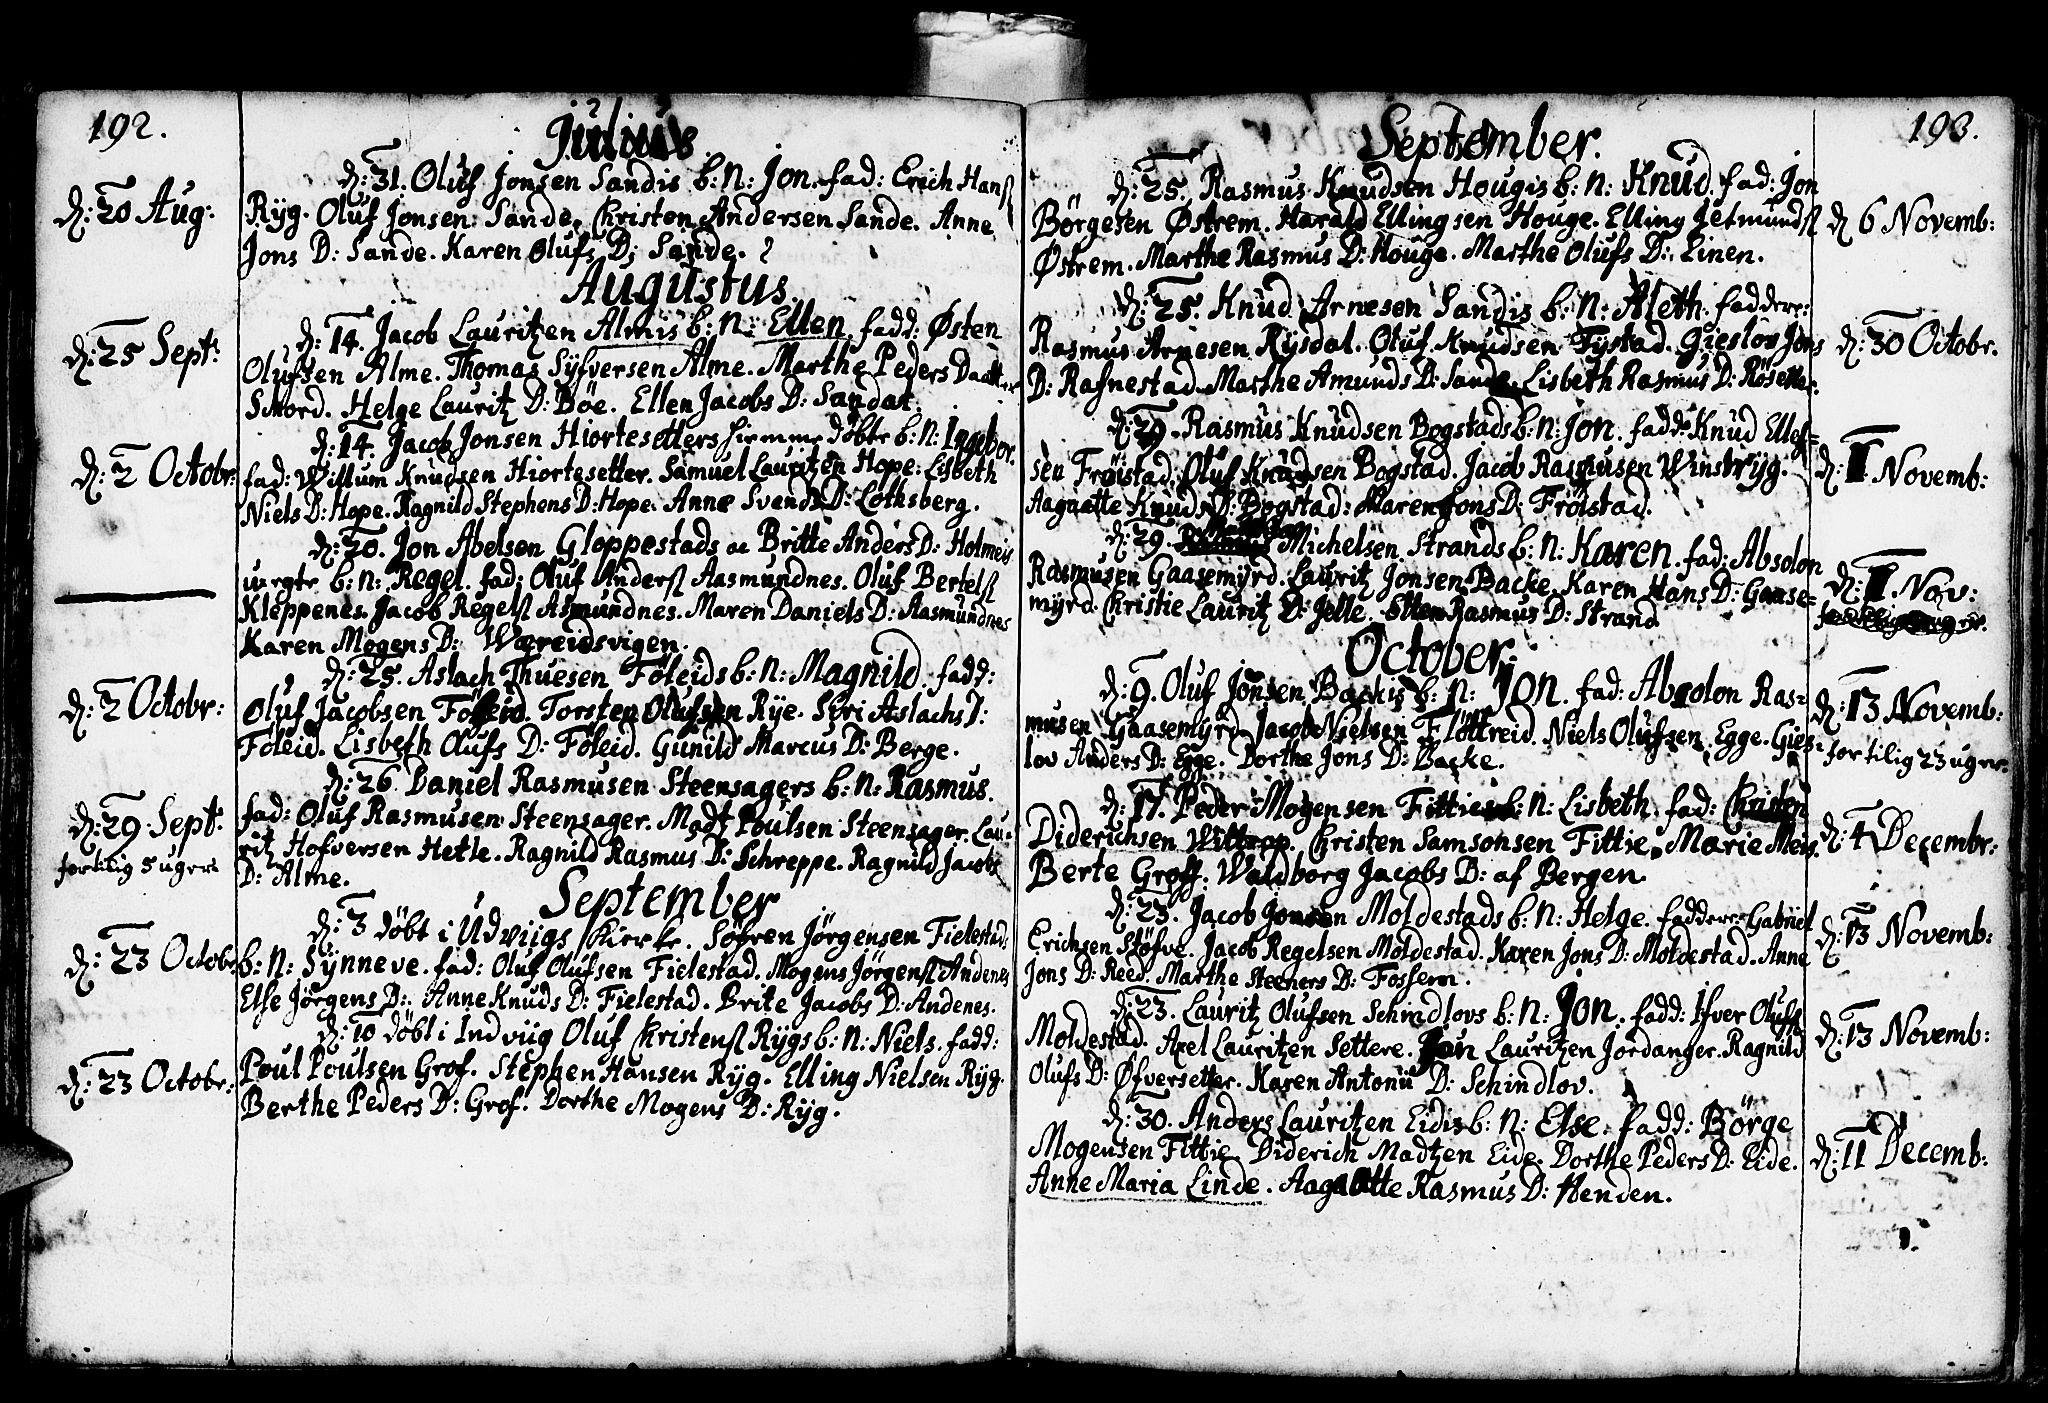 192.
Julius
d: 20 Aug:
d: 31. Oluf Jonsen Sandis b: n: Jon. fad: Erich Hans
Ryg. Oluf Jonsen Sande. Christen Andersen Sande. Anne
Jons D: Sande. Karen Olufs D: Sande.
Augustus.
d: 25 Sept:
d: 14. Jacob Lauritzen Almis b: n: Ellen. fadd: Østen
Olufsen Alme. Thomas Syfversen Alme. Marthe Peders Daatter
Smord. Helge Lauritz D: Böe. Ellen Jacobs D: Sandal.
d: 2 Octobr:
d: 14. Jacob Jonsen Hiortesetters hiemme döbte b: n: Ingebor.
fad: Willum Knudsen Hiortesetter. Samuel Lauritzen Hope. Lisbeth
Niels D: Hope. Ragnild Stephens D: Hope. Anne Svends D: Lothsberg.
d: 20. Jon Abelsen Gloppestads oc Britte Anders D: Holmeis
uægte b: n: Regel. fad: Oluf Anders Aasmundnes. Oluf Bertels
Kleppenes. Jacob Regels Asmundnes. Maren Daniels D: Aasmundnes
Karen Mogens D: Wæreidsvigen.
d: 2 Octobr:
d: 25. Aslach Thuesen Föleids b: n: Magnild. fadd:
Oluf Jacobsen Föleid. Torsten Olufsen Rye. Siri Aslachs D:
Föleid. Lisbeth Olufs D: Föleid. Gunild Marcus D: Berge.
d: 29 Sept:
fortilig 5 uger
d: 26. Daniel Rasmusen Steensagers b: n: Rasmus.
fad: Oluf Rasmusen Steensager. Madz Poulsen Steensager. Lau-
ritz Hofversen Hetle. Ragnild Rasmus D: Schreppe. Ragnild Jacobs
D: Alme.
September
d: 23 Octobr
d: 3 döbt i Udviigs Kierke. Söfren Jörgensen Fielestads
b: n: Synneve. fad: Oluf Olufsen Fielestad. Mogens Jörgens Andenes
Else Jörgens D:. Anne Knuds D: Fielestad. Brite Jacobs D: Andenes.
d: 23 Octobr:
d: 10 döbt i Indviig Oluf Christens Rygs b: n: Niels. fadd:
Poul Poulsen Grof. Stephen Hansen Ryg. Elling Nielsen Ryg.
Berthe Peders D: Grof. Dorthe Mogens D: Ryg.
193.
September.
d: 25. Rasmus Knudsen Hougis b: n: Knud. fad: Jon
Börgesen Østrem. Harald Ellingsen Houge. Elling Jetmunds
Østrem. Marthe Rasmus D: Houge. Marthe Olufs D: Linen.
d 6 Novemb:
d: 25. Knud Arnesen Sandis b: n: Aleth. faddere:
Rasmus Arnesen Rysdal. Oluf Knudsen Tystad. Gieslov Jons
D: Rafnestad. Marthe Amunds D: Sande. Lisbeth Rasmus D: Rösetter.
d: 30 Octobr.
d: 29. Rasmus Knudsen Bogstads b: n: Jon. fadd: Knud Ellef-
sen Fröistad. Oluf Knudsen Bogstad. Jacob Rasmusen Winstryg.
Aagaatte Knuds D: Bogstad: Maren Jons D: Fröistad.
d: 1 Novemb:
d: 29. Michelsen Strands b: n: Karen. fad: Absolon
Rasmusen Gaasemyrd. Lauritz Jonsen Backe. Karen Hans D: Gaase-
myrd. Christie Lauritz D: Jelle. Ellen Rasmus D: Strand
d: 1. Nov:
October.
d: 9. Oluf Jonsen Backis b: n: Jon. fad: Absolon Ras-
musen Gaasemyrd. Jacob Nielsen Flöttreid. Niels Olufsen Egge. Gies-
lov Anders D: Egge. Dorthe Jons D: Backe.
d: 13 Novemb:
fortilig 23 uger.
d: 17. Peder Mogensen Fitties b: n: Lisbeth. fad: Christen
Diderichsen Wittrop. Christen Samsonsen Fittie. Marie Meis.
Berte Groff. Waldborg Jacobs D: af Bergen.
d: 4 Decembr:
d: 23. Jacob Jonsen Moldestads b: n: Helge. faddere Gabriel
Erichsen Stöfve. Jacob Regelsen Moldestad. Karen Jons D: Moldestad. Anne
Jons D: Reed. Marthe Steeners D: Fossem.
d: 13 Novemb:
d: 23. Lauritz Olufsen Schindlovs b: n: Jon. fadd: Ifver Olufs
Moldestad. Axel Lauritzen Settere. Jon Lauritzen Jordanger. Ragnild
Olufs D: Øfversetter. Karen Antoni D: Schindlov.
d: 13 Novemb:
d: 30. Anders Lauritzen Eidis b: n: Else. fadd: Börge
Mogensen Fittie. Diderich Madtzen Eide. Dorthe Peders D: Eide.
Anne Maria Linde. Aagaatte Rasmus D: Henden.
d: 11 Decemb: